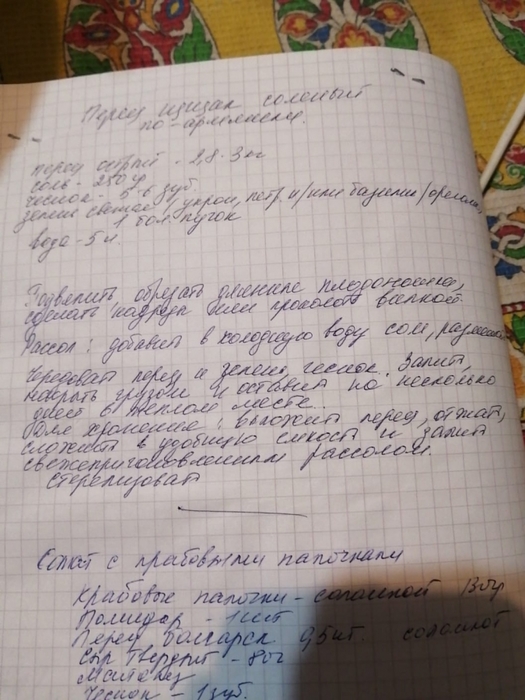 Перец цицак соленый
по-армянски.
перец острый - 2,8-3 кг
соль - 250 г
чеснок - 5-6 зуб.
зелень свежая (укроп, петр. и/или базилик/орегано,
1 бол. пучок
вода - 5 л.
Подвялить, обрезать длинные плодоножки,
сделать надрез или проколоть вилкой.
Рассол: добавить в холодную воду соль, размешать
Чередовать перец и зелень, чеснок. Залить,
накрыть грузом и оставить на несколько
дней в теплом месте.
Для хранения: выложить перец, отжать,
сложить в удобную емкость и залить
свежеприготовленным рассолом.
Стерилизовать
Салат с крабовыми палочками
Крабовые палочки - соломкой 130 гр
Помидор - 1 шт
Перец болгарск 0,5 шт. соломкой
Сыр твердый - 80 г
Майонез
Чеснок - 1 зуб.